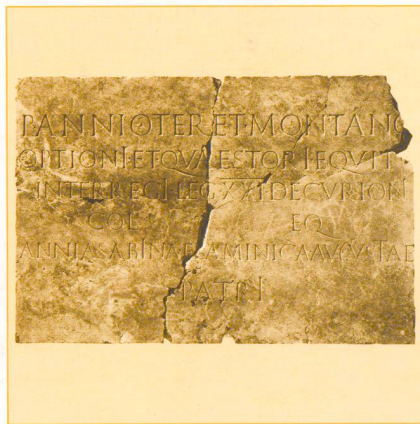 P ANNIO TERET MONTANO
OPTIONI ET QVAESTORI EQVIT
INTERREGI LEG XXI DECVRION
COL EQ
ANNIA SABINA FLAMINICA AVGVSTAE
PATRI